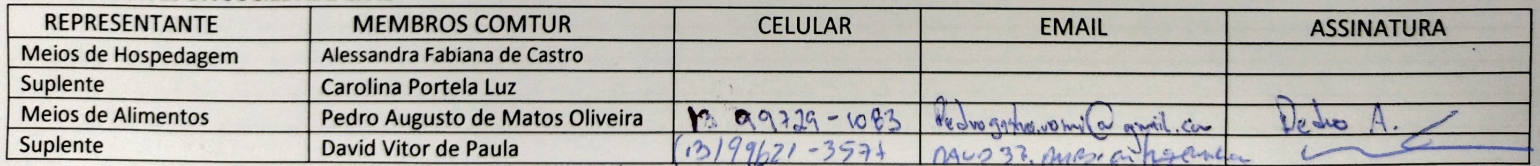 REPRESENTANTE MEMBROS COMTUR CELULAR EMAIL ASSINATURA
Meios de Hospedagem Alessandra Fabiana de Castro
Suplente Carolina Portela Luz
Meios de Alimentos Pedro Augusto de Matos Oliveira 13 99729-1083 Pedro A.
Suplente David Vitor de Paula